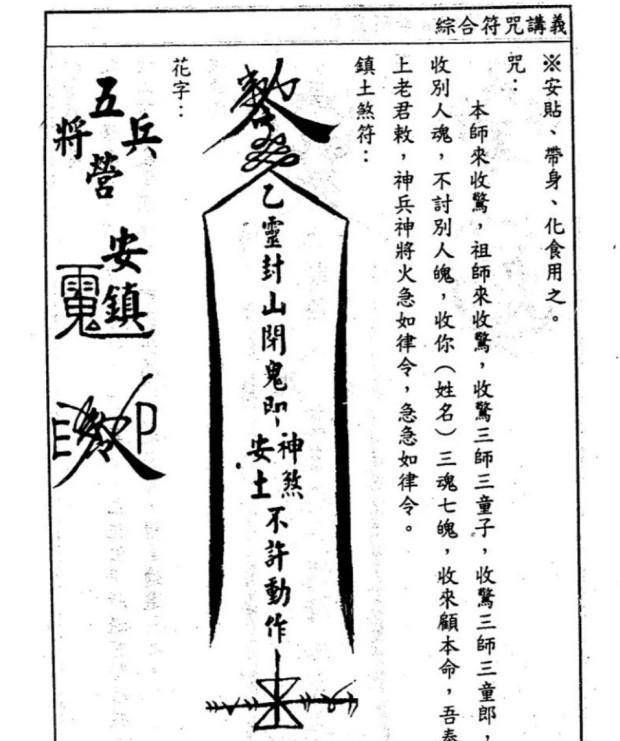 綜合符咒講義
※安貼、帶身、化食用之。
咒：
本師來收驚，祖師來收驚，收驚三師三童子，收驚三師三童郎，
收別人魂，不討別人魄，收你（姓名）三魂七魄，收來顧本命，吾奉
上老君敕，神兵神將火急如律令，急急如律令。
鎮土煞符：
敕令
乙靈封山閉鬼即
神煞
安土
不許動作
花字：
五
兵
將
營
安鎮